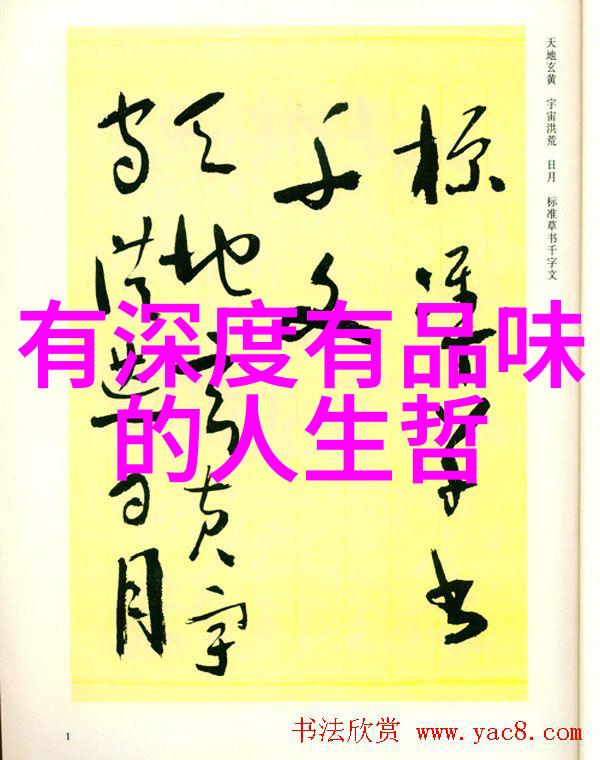 天地玄黄 宇宙洪荒 日月 标准草书千字文
標準草書
千文
天地玄黄宇
宙洪荒日月
有深度有品味
的人生哲
1
书法欣赏 www.yac8.com